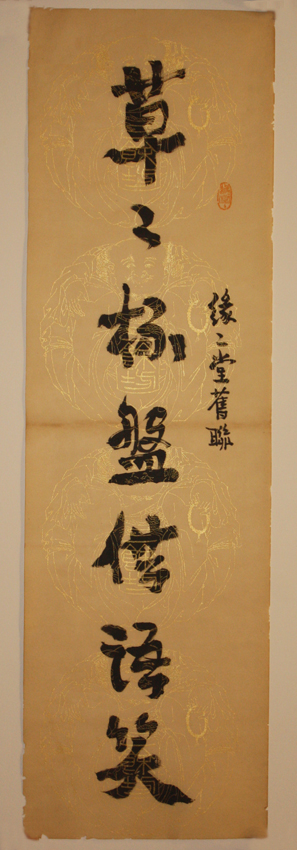 緣〻堂舊聯
草〻杯盤供語笑